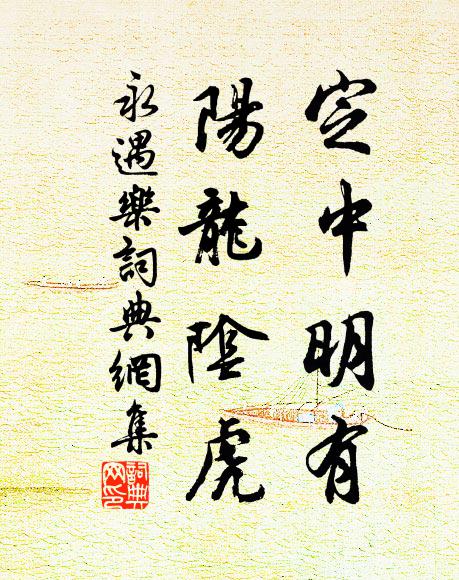 定中明有
陽龍陰虎
永遇樂詞典網集
詞典
网印